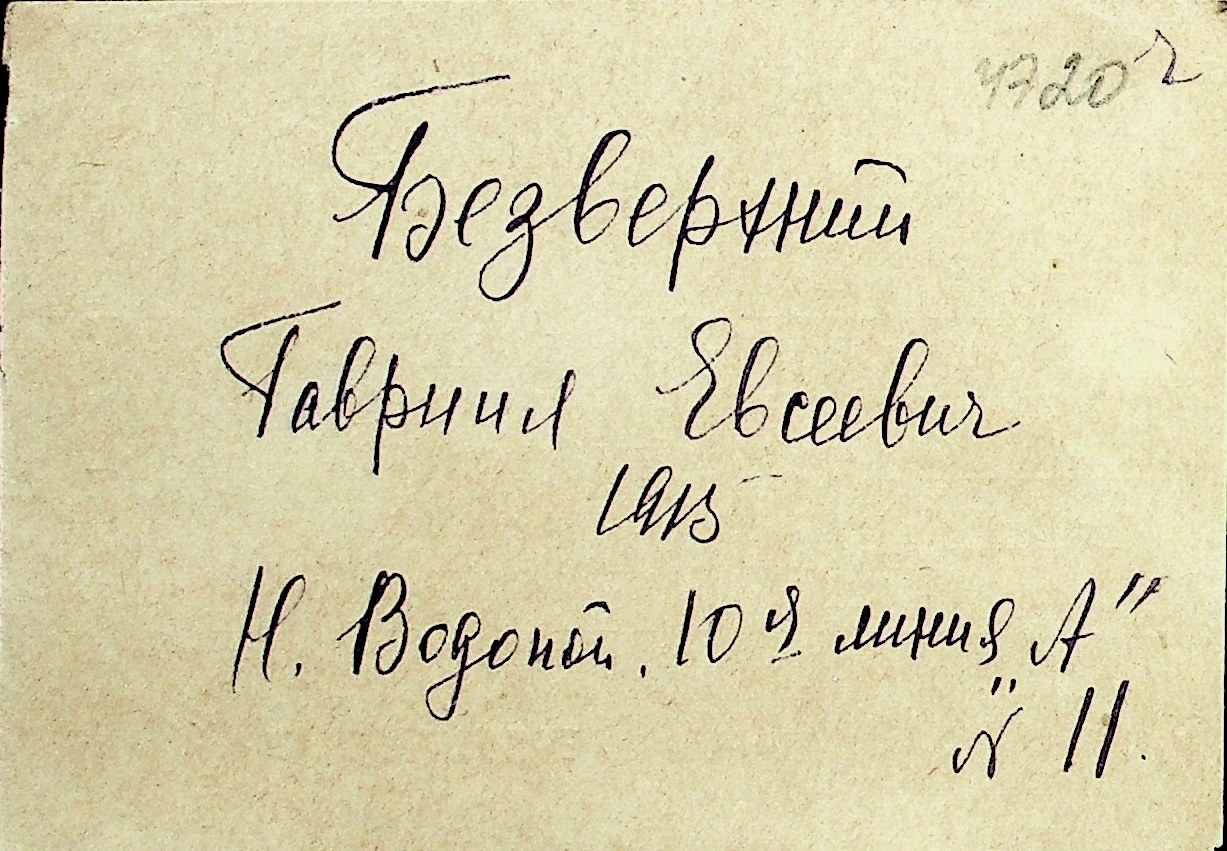 4720 г
Безверхний
Гавриил Евсеевич
1915
Н. Водопой. 10 я линия "А"
№ 11.